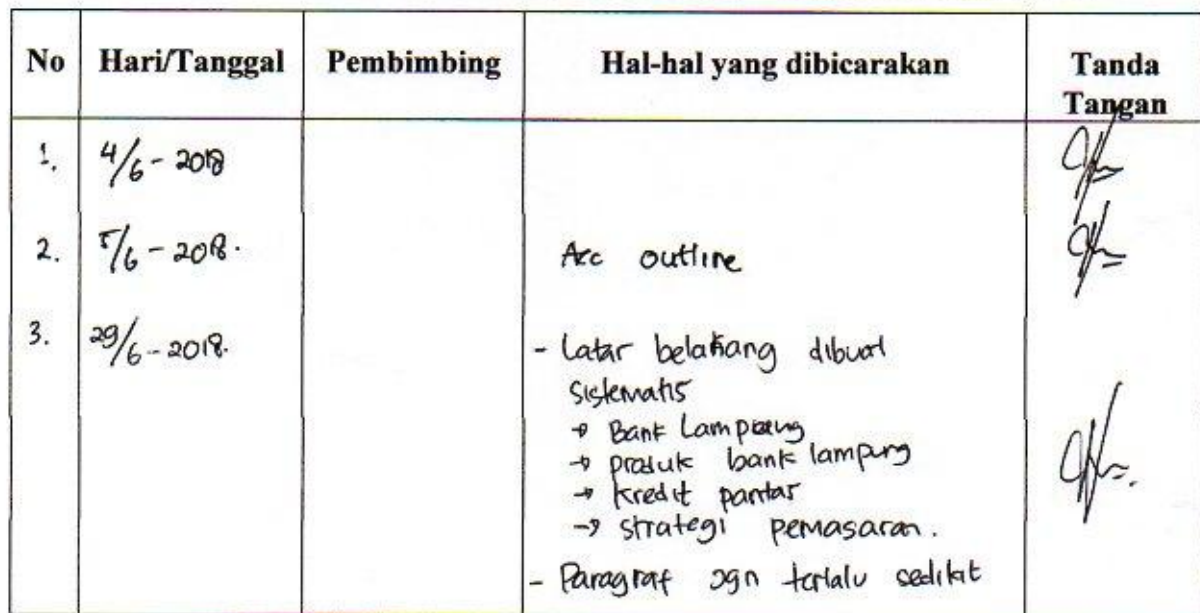 No Hari/Tanggal Pembimbing Hal-hal yang dibicarakan Tanda Tangan
1. 4/6 - 2018
2. 5/6 - 2018. Acc outline
3. 29/6 - 2018. - Latar belakang dibuat
sistematis
→ Bank Lampung
→ produk bank lampung
→ kredit pantas
→ strategi pemasaran.
- Paragraf jgn terlalu sedikit